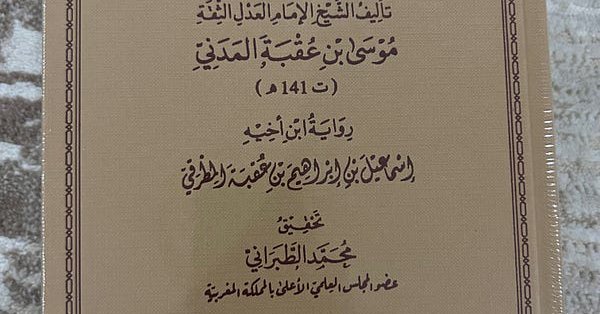 تَأليفُ الشَّيْخِ الإِمَامِ العَدْلِ الثِّقَةِ
مُوسَىٰ بْنِ عُقْبَةَ المَدَنِيِّ
(ت 141 هـ)
رِوَايَةُ ابْنِ أَخِيْهِ
إِسْمَاعِيْلَ بْنِ إِبْرَاهِيْمَ بْنِ عُقْبَةَ المِطْرَقِيِّ
تَحْقِيْقُ
مُحَمَّد الطَّبَرَانِي
عضو المجلس العلمي الأعلى بالمملكة المغربية